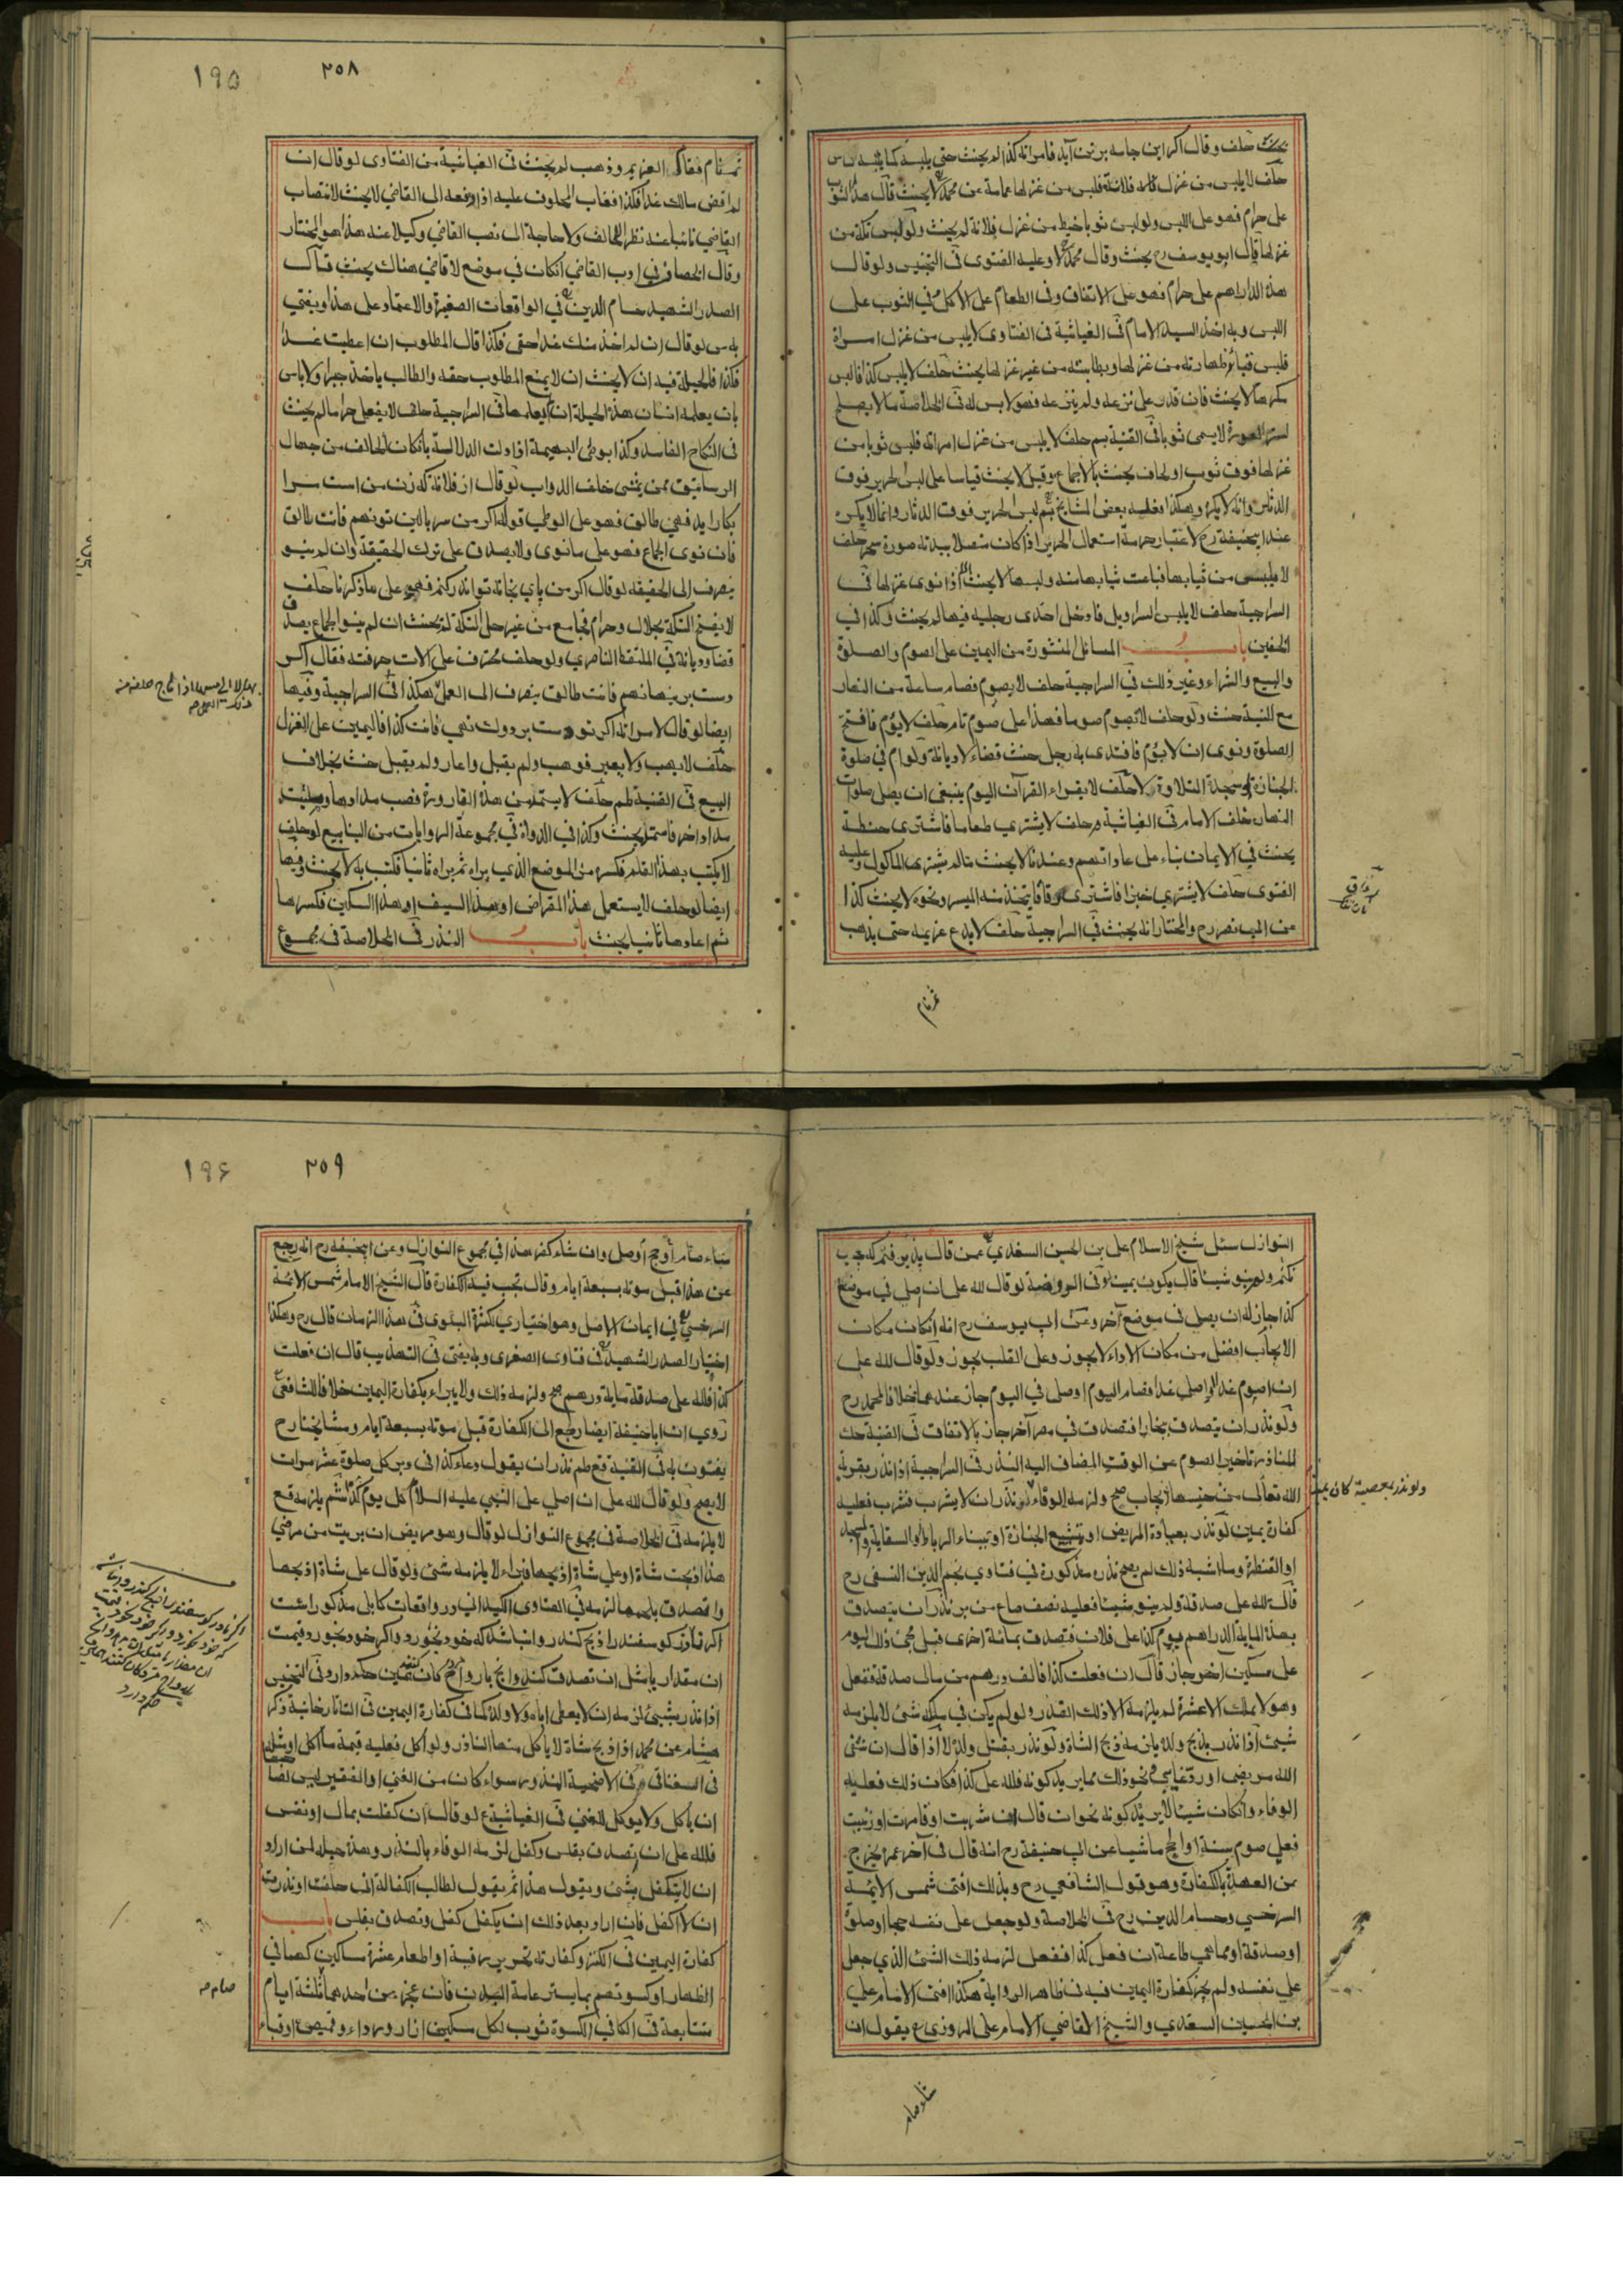 يحنث حلف وقال اكر اين جامه برتن آيد فامراته كذا لم يحنث حتى يلبسه كما يلبس الناس
حلف لا يلبس من غزل فلانة فلبس من غزلها عمامة عن محمد لا يحنث قال هذا الثوب
على حرام فهو على اللبس ولو لبس ثوبا خيط من غزل فلانة لم يحنث ولو لبس تكة من
غزلها قال ابو يوسف رح يحنث وقال محمد لا وعليه الفتوى في التجنيس ولو قال
هذه الدراهم على حرام فهو على الانفاق وفي الطعام على الاكل في الثوب على
اللبس وبه اخذ السيد الامام في الغياثية في الفتاوى لا يلبس من غزل امراة
فلبس قباء ظهارته من غزلها وبطانته من غير غزلها يحنث حلف لا يلبس كذا فالبس
مكرها لا يحنث فان قدر على نزعه ولم ينزعه فهو لابس له في الخلاصة ما لا يصلح
لستر العورة لا يسمى ثوبا في القنية بم حلف لا يلبس من غزل امراته فلبس ثوبا من
غزلها فوق ثوب او لحاف يحنث بالاجماع وقيل لا يحنث قياسا على لبس الحرير فوق
الدثار وانه لا يكره وهكذا فعله بعض المشايخ بم لبس الحرير فوق الدثار وانما لا يكره
عند ابيحنيفة رح لاعتبار حرمة استعمال الحرير اذا كان متصلا ببدنه صورة سمح حلف
لا يلبس من ثيابها فباعت ثيابها منه ولبسها لا يحنث الا اذا نوى غزلها في
السراجية حلف لا يلبس السراويل فادخل احدى رجليه فيها لم يحنث وكذا في
الخفين باب المسائل المنثورة من اليمين على الصوم والصلوة
والبيع والشراء وغير ذلك في السراجية حلف لا يصوم فصام ساعة من النهار
مع النية حنث ولو حلف لا يصوم صوما فهذا على صوم تام حلف لا يؤم فافتتح
الصلوة ونوى ان لا يؤم فاقتدى به رجل حنث قضاء لا ديانة ولو ام في صلوة
الجنازة او سجدة التلاوة لا حلف لا يقراء القران اليوم ينبغي ان يصلى صلوات
النهار خلف الامام في الغياثية م حلف لا يشترى طعاما فاشترى حنطة
يحنث في الايمان بناء على عاداتهم وعندنا لا يحنث مالم يشترى الماكول وعليه
الفتوى حلف لا يشترى خبزا فاشترى رقاقا يتخذ منه الميسر ونحوه لا يحنث كذا
عن ابي نصر رح والمختار انه يحنث في السراجية حلف لا يدع غريمه حتى يذهب
ثم نام
٢٥٨
١٩٥
ثم نام فقال العزيم وذهب لم يحنث في الغياثية من الفتاوى لو قال ان
لم اقض مالك غدا فكذا فغاب المحلوف عليه اذا دفعه الى القاضي لا يحنث لانتصاب
القاضي نائبا عنه نظرا للحالف ولا حاجة الى نصب القاضي وكيلا عنه هذا هو المختار
وقال الخصاف في ادب القاضي ان كان في موضع لا قاضي هناك يحنث قال
الصدر الشهيد حسام الدين في الواقعات الصغيرة والاعتماد على هذا ويفتي
به س لو قال ان لم اخذ منك غدا حقى فكذا قال المطلوب ان اعطيت غدا
فكذا فالحيلة فيه ان لا يحنث ان لا يمنع المطلوب حقه والطالب ياخذ جبرا ولا باس
بان يعلمه انسان هذه الحيلة ان لم يعلمها في السراجية حلف لا يفعل حراما لم يحنث
في النكاح الفاسد وكذا بوطي البهيمة اذا دلت الدلالة بان كان الحالف من جهال
الرساتيق ممن يمشى خلف الدواب لو قال از فلانة كه زن من است سرا
بكار ايد فهي طالق فهو على الوطي قوله اكر من سر بالين تو نهم فانت طالق
فان نوى الجماع فهو على ما نوى ولا يصدق على ترك الحقيقة وان لم ينو
ينصرف الى الحقيقة لو قال اكر من پاي بخانه تو اندر كنم فهو على ما ذكرنا حلف
لا يفتح التكة بحلال وحرام فجامع من غير حل التكة لم يحنث ان لم ينو الجماع يصدق
قضاء وديانة في الملتقط الناصري ولو حلف محترف على الات حرفته فقال اكر
دست برينها نهم فانت طالق ينصرف الى العمل هكذا في السراجية وفيها
ايضا لو قال لامراته اكر تو دست بر دوك نهي فانت كذا فاليمين على الغزل
حلف لا يهب ولا يعير فوهب ولم يقبل واعار ولم يقبل حنث بخلاف
البيع في القنية ظم حلف لا يستمد من هذه القارورة فصب مدادها وصب
مدادا اخر فاستمد يحنث وكذا في الدواة في مجموعة الروايات من الينابيع لو حلف
لا يكتب بهذا القلم فكسره من الموضع الذي يراه ثم براه ثانيا فكتب به لا يحنث وفيها
ايضا لو حلف لا يستعمل هذا المقراض او بهذا السيف او هذا السكين فكسرها
ثم اعادها ثانيا لم يحنث باب النذر في الخلاصة في مجموع
النوازل سئل شيخ الاسلام على بن الحسين السغدي عمن قال
نكنم ولم ينو شيئا قال يكون يمينا في الروضة لو قال لله على ان اصلي في موضع
كذا جاز له ان يصلى في موضع آخر وعن ابي يوسف رح انه ان كان مكان
الايجاب افضل من مكان الاداء لا يجوز وعلى القلب يجوز ولو قال لله على
ان اصوم غدا او اصلي غدا فصام اليوم او صلى في اليوم جاز عندهما خلافا لمحمد رح
ولو نذر ان يتصدق ببخارا فتصدق في مصر آخر جاز بالاتفاق في القنية حك
للمناذر تاخير الصوم عن الوقت المضاف اليه النذر في السراجية اذا نذر بقربة
الله تعالى من جنسها ايجاب صح ولزمه الوفاء لو نذر ان لا يشرب فشرب فعليه
ولو نذر بمعصية كان
كفارة يمين لو نذر بعيادة المريض او تشييع الجنازة او ببناء الرباط او السقاية والمسجد
او القنطرة وما اشبه ذلك لم يصح نذره مذكورة في فتاوي نجم الدين النسفي رح
قال لله على صدقة ولم ينو شيئا فعليه نصف صاع من بر نذر ان يتصدق
بهذه المائة الدراهم يوم كذا على فلان فتصدق بمائة اخرى قبل مجئ ذلك اليوم
على مسكين اخر جاز قال ان فعلت كذا فالف درهم من مالى صدقة ففعل
وهو لا يملك الا عشرة لم يلزمه الا ذلك القدر ولو لم يكن في ملكه شئ لا يلزمه
شيئ اذا نذر بذبح ولده يلزمه ذبح الشاة ولو نذر بقتل ولده لا اذا قال ان شفى
الله مريضى او رد غايبي ونحو ذلك مما يريد كونه فلله على كذا فكان ذلك فعليه
الوفاء وان كان شيئا لا يريد كونه نحو ان قال ان شربت او قامرت او زنيت
فعلى صوم سنة او الحج ماشيا عن ابي حنيفة رح انه قال في آخر عمره يخرج
من العهدة بالكفارة وهو قول الشافعي رح وبذلك افتى شمس الائمة
السرخسي وحسام الدين رح في الخلاصة ولو جعل على نفسه حجا او صلوة
او صدقة او مما هي طاعة ان فعل كذا ففعل لزمه ذلك الشئ الذي جعل
على نفسه ولم يجز كفارة اليمين فيه في ظاهر الرواية هكذا افتى الامام على
بن الحسين السغدي والشيخ القاضي الامام على المروزي ع يقول ان
شاء صام
٢٥٩
١٩۶
شاء صام او حج او صلى وان شاء كفر هذا في مجموع النوازل وعن ابيحنيفة رح انه رجع
عن هذا قبل موته بسبعة ايام وقال تجب فيه الكفارة قال الشيخ الامام شمس الائمة
السرخسي في ايمان الاصل وهو اختياري لكثرة البلوى في هذا الزمان قال رح وهكذا
اختيار الصدر الشهيد في فتاوى الصغرى وبه يفتى في التهذيب قال ان فعلت
كذا فلله على صدقة مايه درهم صح ولزمه ذلك ولا يبراء بكفارة اليمين خلافا للشافعي
روي ان اباحنيفة ايضا رجع الى الكفارة قبل موته بسبعة ايام ومشايخنا رح
يفتون به في القنية قع ظم نذر ان يقول دعاء كذا في دبر كل صلوة عشر مرات
لا يصح ولو قال لله على ان اصلي على النبي عليه السلام كل يوم كذا شم يلزمه قع
لا يلزمه في الخلاصة في مجموع النوازل لو قال وهو مريض ان بريت من مرضي
هذا ذبحت شاة او علي شاة اذبحها فبراء لا يلزمه شئ ولو قال على شاة اذبحها
واتصدق بلحمها لزمه في الفتاوى الكبدانى در واقعات كابلى مذكور است
اكر ناذر كوسفند را ذبح كند روا نباشد كه خود بخورد واكر خود بخورد قيمت
ان مقدار يا مثل ان تصدق كند
اذا نذر بشيئ لزمه ان لا يعطى اباه ولا ولده كما في كفارة اليمين في التاتارخانية ذكر
هشام عن محمد اذا ذبح شاة لا ياكل منها الناذر ولو اكل فعليه قيمة ما اكل
في السغناقي في الاضحية المنذورة سواء كان من الغني او الفقير ليس لهما
ان ياكل ولا يوكل للغني في الغياثية ع لو قال ان كفلت بمال او نفس
فلله على ان يتصدق بفلس وكفل لزمه الوفاء بالنذر وهذه حيلة لمن اراد
ان لا يتكفل بشئ ويقول هذا ثم يقول لطالب الكفالة انى حلفت او نذرت
ان لا اكفل فان اراد بعد ذلك ان يكفل كفل وتصدق بفلس باب
كفارة اليمين في الكنز وكفارته تحرير رقبة او اطعام عشرة مساكين كهما في
الظهار او كسوتهم بما يستر عامة البدن فان عجز عن احدهما ثلثة ايام
صام صح
متتابعة في الكافي الكسوة ثوب لكل مسكين ازار ورداء وقميص او قباء